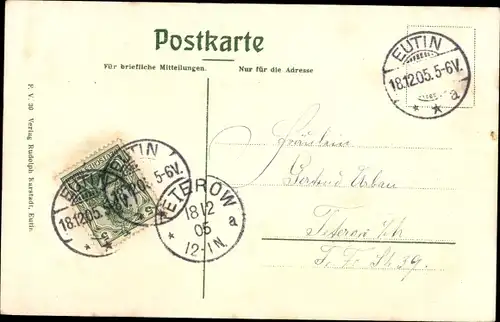 Postkarte
Für briefliche Mitteilungen. Nur für die Adresse
EUTIN
18.12.05. 5-6V.
* * a
F. V. 30 Verlag Rudolph Karstadt, Eutin.
EUTIN
18.12.05. 5-6V.
EUTIN
5-6V.
TETEROW
1812
05
a
12-1N.
*
Fräulein
Gertrud Urban
Teterow